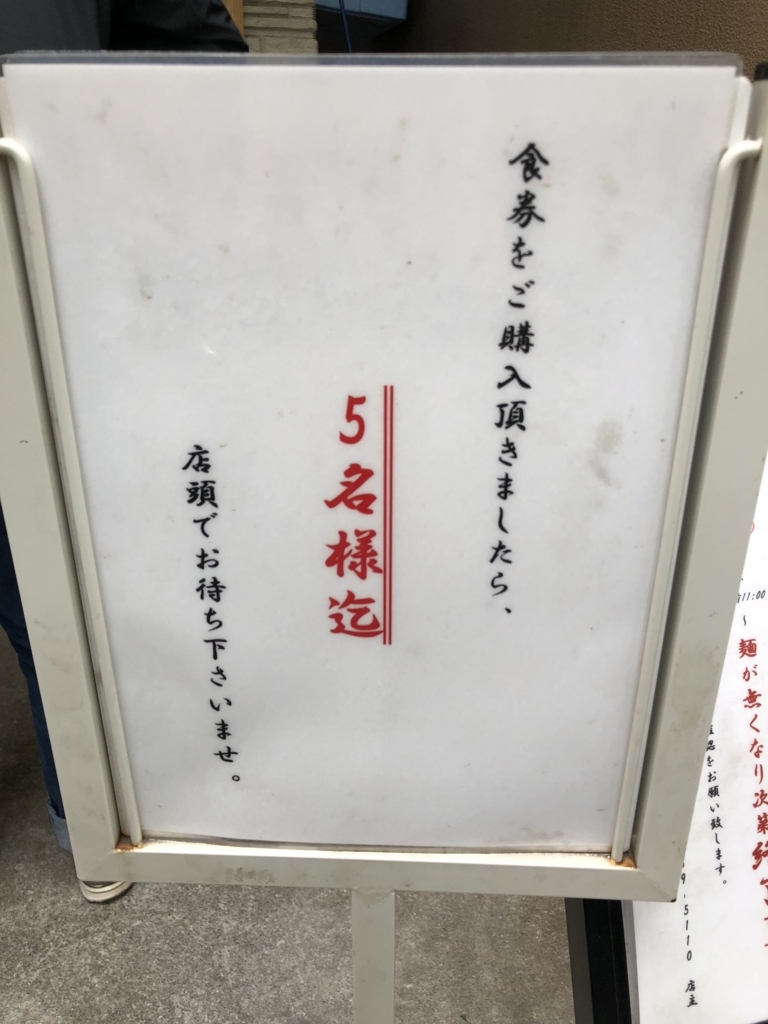 食券をご購入頂きましたら、
5名様迄
店頭でお待ち下さいませ。
11:00
〜麺が無くなり次第終了
認をお願い致します。
9.5110 店主